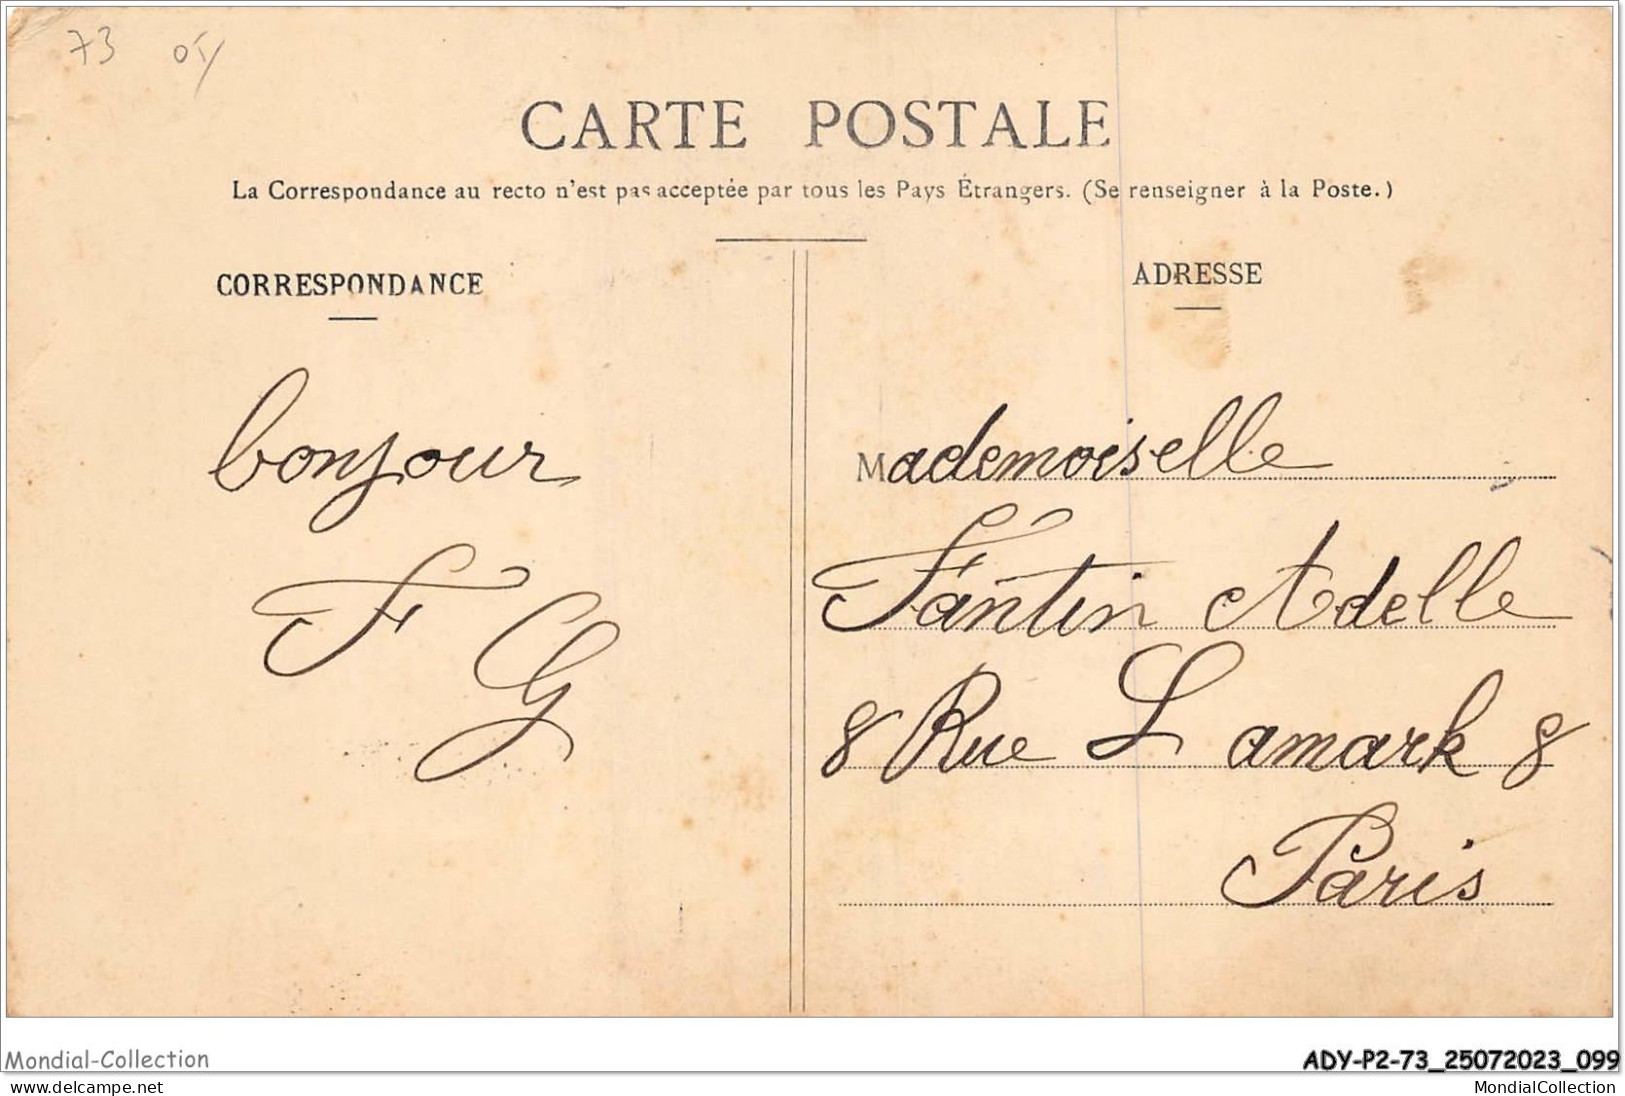 73
CARTE POSTALE
La Correspondance au recto n'est pas acceptée par tous les Pays Étrangers. (Se renseigner à la Poste.)
CORRESPONDANCE
bonjour
F G
ADRESSE
Mademoiselle
Fantin Adelle
8 Rue Lamark 8
Paris
Mondial-Collection
ADY-P2-73_25072023_099
www.delcampe.net
MondialCollection